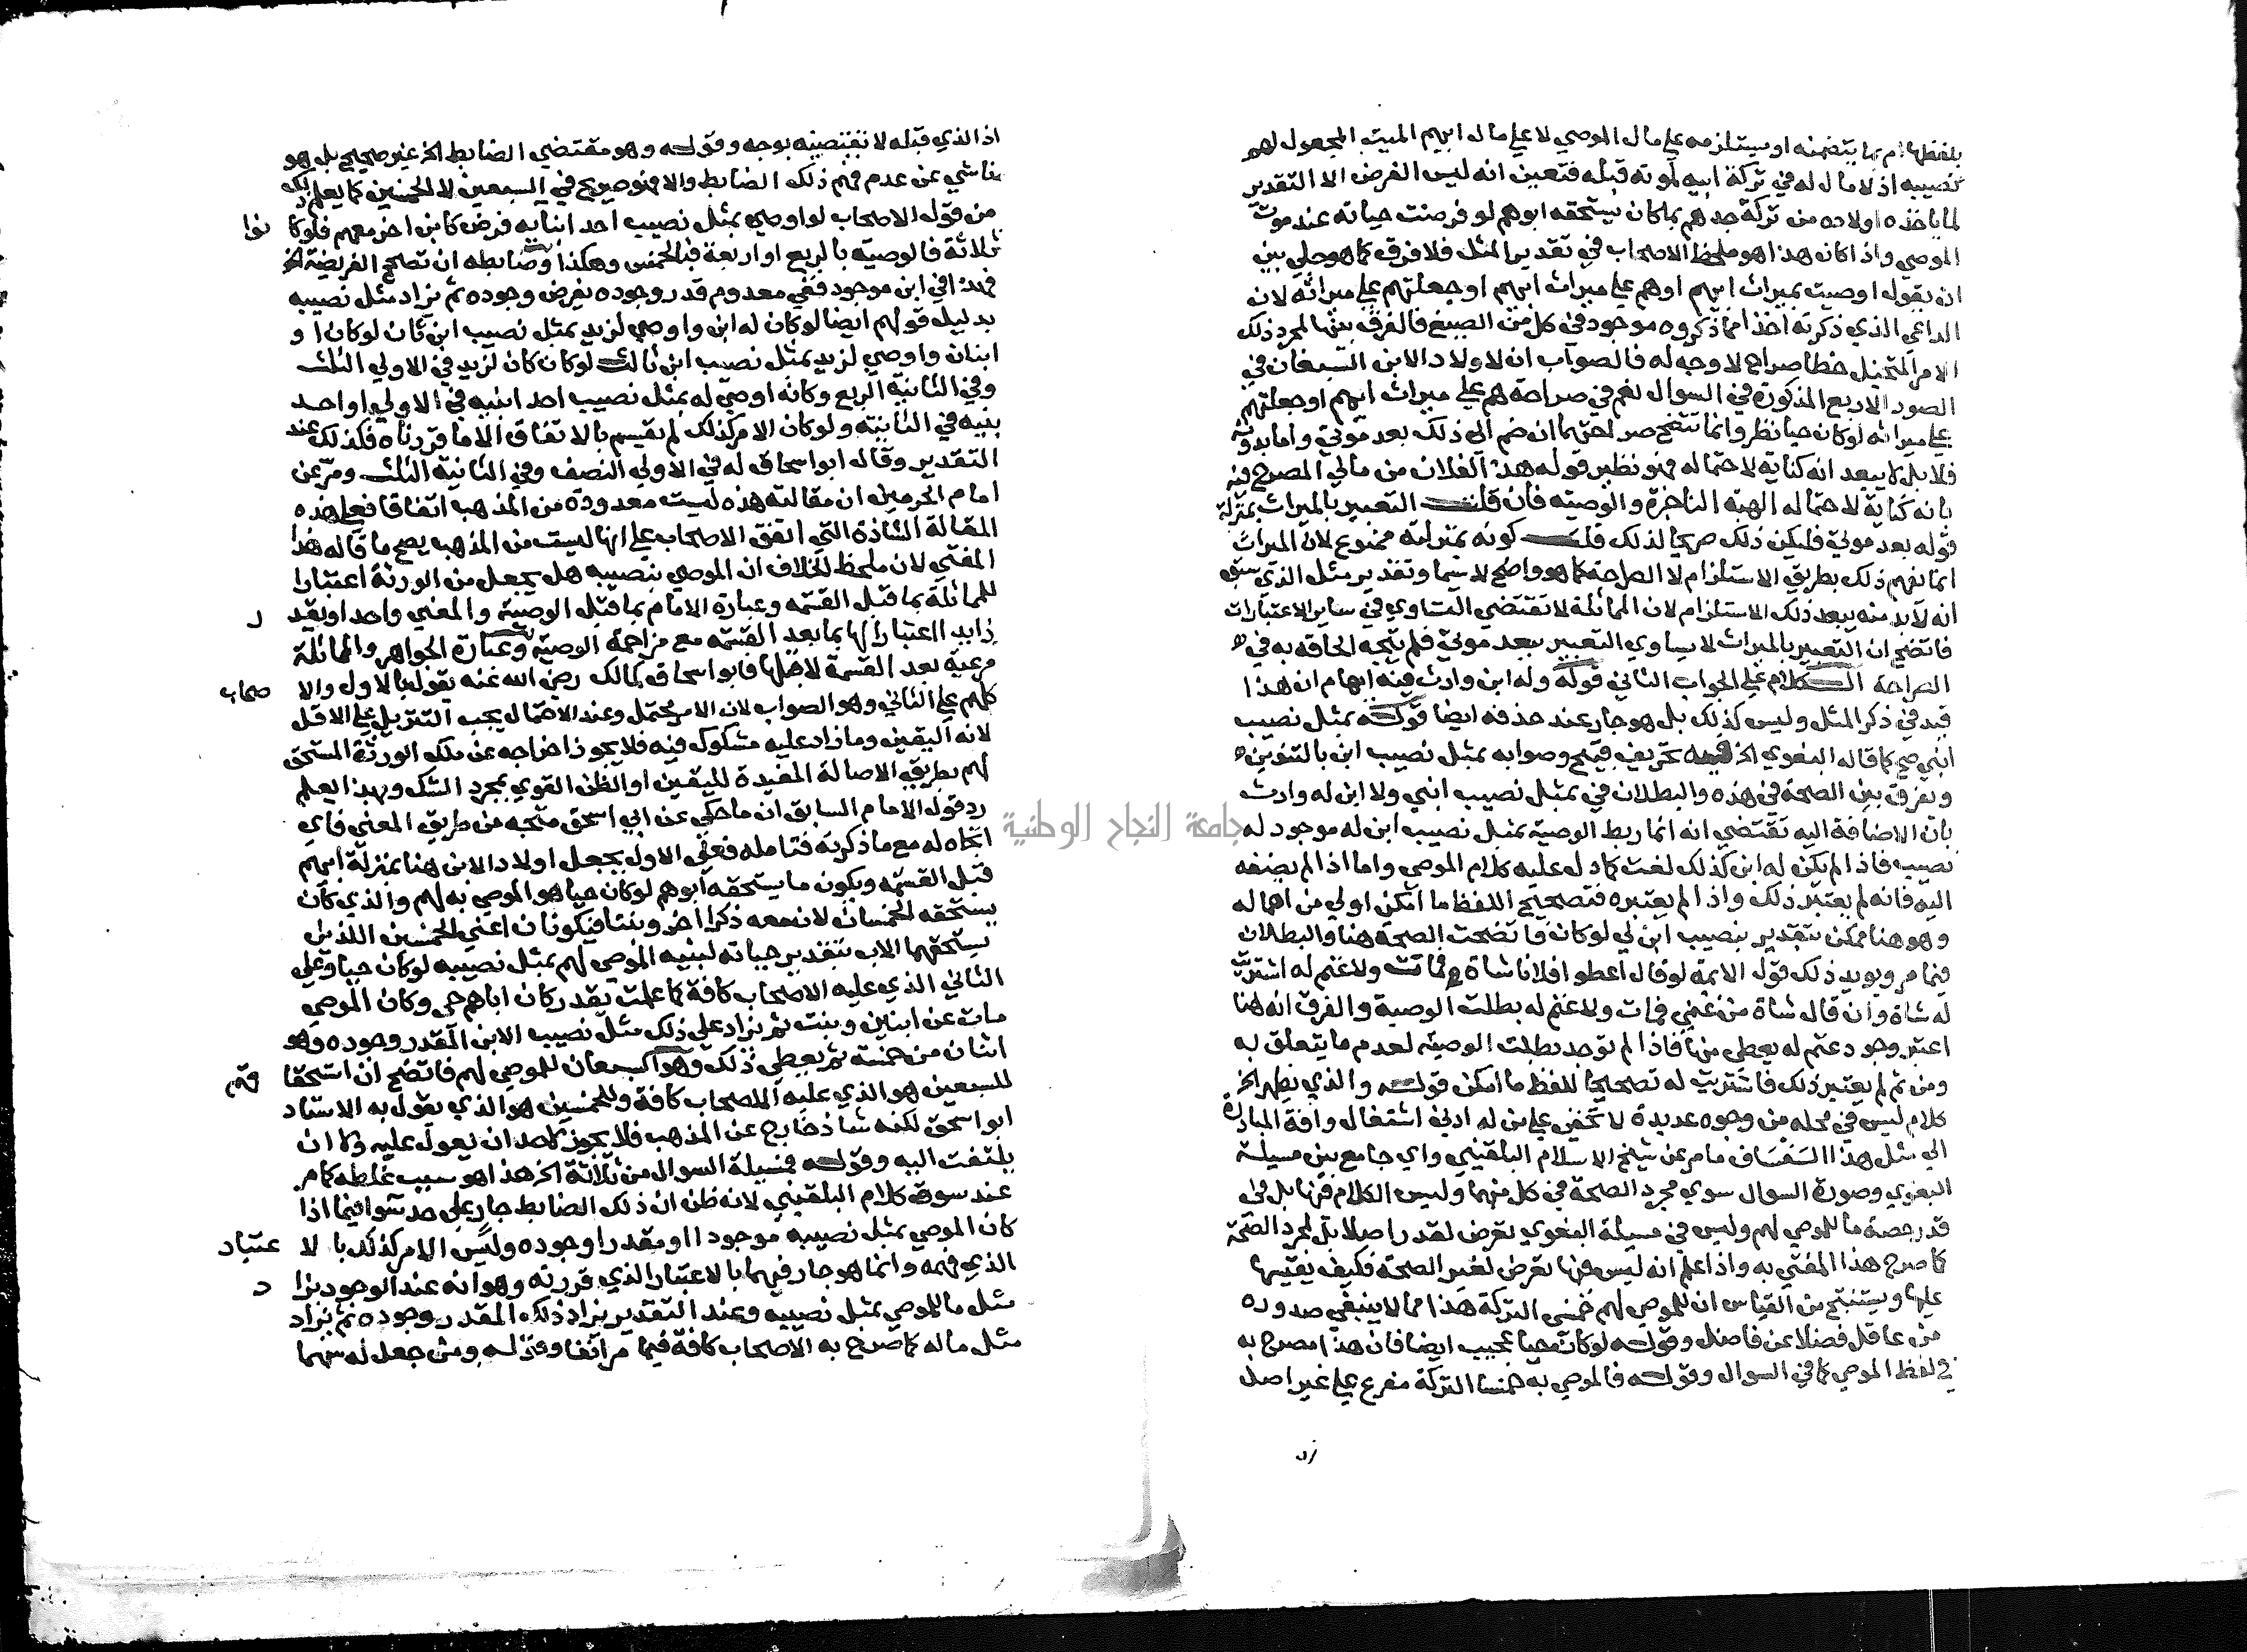 بلفظها ام بما يتضمنه او يستلزمه علي مال الموصي لا علي مال ابيهم الميت المجعول لهم
نصيبه اذ لا مال له في تركة ابيه لموته قبله فتعين انه ليس الغرض الا التقدير
لما ياخذه اولاده من تركة جدهم بما كان يستحقه ابوهم لو فرضت حياته عند موت
الموصي واذا كان هذا هو ملحظ الاصحاب في تقدير المثل فلا فرق كما هو جلي بين
ان يقول اوصيت بميراث ابيهم او هم علي ميراث ابيهم او جعلتهم علي ميراثه لان
الداعي الذي ذكرته اخذا مما ذكروه موجود في كل من الصيغ فالفرق بينها لمجرد ذلك
الامر المتخيل خطا صراح لا وجه له فالصواب ان لاولاد الابن السبعان في
الصور الاربع المذكورة في السوال نعم في صراحة هم علي ميراث ابيهم او جعلتهم
علي ميراثه لو كان حيا نظر وانما تتضح صراحتهما ان ضم الي ذلك بعد موتي واما بدونه
فلا بل لا يبعد انه كناية لاحتماله فهو نظير قوله هذا لفلان من مالي المصرح فيه
بانه كناية لاحتماله الهبة الناجزة والوصية فان قلت التعبير بالميراث بمنزلة
قوله بعد موتي فليكن ذلك صريحا لذلك قلت كونه بمنزلته ممنوع لان الميراث
انما يفهم ذلك بطريق الاستلزام لا الصراحة كما هو واضح لا سيما وتقدير مثل الذي سبق
انه لابد منه يبعد ذلك الاستلزام لان المماثلة لا تقتضي التساوي في ساير الاعتبارات
فاتضح ان التعبير بالميراث لا يساوي التعبير ببعد موتي فلم يتجه الحاقه به في
الصراحة الكلام علي الجواب الثاني قوله وله ابن وارث فيه ايهام ان هذا
قيد في ذكر المثل وليس كذلك بل هو جار عند حذفه ايضا قوله بمثل نصيب
ابني صح كما قاله البغوي اخر فيه تحريف قبيح وصوابه بمثل نصيب ابن بالتنوين
ويفرق بين الصحة في هذه والبطلان في بمثل نصيب ابني ولا ابن له وارث
بان الاضافة اليه تقتضي انه انما ربط الوصية بمثل نصيب ابن له موجود له
نصيب فاذا لم يكن له ابن كذلك لغت كما دل عليه كلام الموصي واما اذا لم يضفه
اليه فانه لم يعتبر ذلك واذا لم يعتبره فتصحيح اللفظ ما امكن اولي من اهماله
وهو هنا ممكن بتقدير بنصيب ابن لي لو كان فاتضحت الصحة هنا والبطلان
فيما مر ويويد ذلك قول الايمة لو قال اعطوا فلانا شاة فمات ولا غنم له اشتريت
له شاة وان قال شاة من غنمي فمات ولا غنم له بطلت الوصية والفرق انه هنا
اعتبر وجود غنم له يعطي منها فاذا لم توجد بطلت الوصية لعدم ما يتعلق به
ومن ثم لم يعتبر ذلك فاشتريت له تصحيحا للفظ ما امكن قوله والذي يظهر الخ
كلام ليس في محله من وجوه عديدة لا تخفي علي من له ادني اشتغال وافة المبادرة
الي مثل هذا السفساف ما مر عن شيخ الاسلام البلقيني واي جامع بين مسيلة
البغوي وصورة السوال سوي مجرد الصحة في كل منهما وليس الكلام فيها بل في
قدر حصة ما للموصي لهم وليس في مسيلة البغوي تعرض لقدر اصلا بل لمجرد الصحة
كما صرح هذا المفتي به واذا علم انه ليس فيها تعرض لغير الصحة فكيف يقيسها
عليها ويستنتج من القياس ان للموصي لهم خمسي التركة هذا مما لا ينبغي صدوره
من عاقل فضلا عن فاضل وقوله لو كان حيا عجيب ايضا فان هذا مصرح به
في لفظ الموصي كما في السوال وقوله فالموصي به خمسا التركة مفرع علي غير اصل
اذ الذي قبله لا يقتضيه بوجه وقوله وهو مقتضي الضابط الخ غير صحيح بل هو
ناشي عن عدم فهم ذلك الضابط والا فهو صريح في السبعين لا الخمسين كما يعلم ذلك
من قول الاصحاب لو اوصي بمثل نصيب احد ابنايه فرض كابن اخر معهم فلو كانوا
ثلاثة فالوصية بالربع او اربعة فبالخمس وهكذا وضابطه ان تصحح الفريضة الخ
فهذا في ابن موجود ففي معدوم قدر وجوده يفرض وجوده ثم يزاد مثل نصيبه
بدليل قولهم ايضا لو كان له ابن واوصي لزيد بمثل نصيب ابن ثان لو كان او
ابنان واوصي لزيد بمثل نصيب ابن ثالث لو كان كان لزيد في الاولي الثلث
وفي الثانية الربع وكانه اوصي له بمثل نصيب احد ابنيه في الاولي او احد
بنيه في الثانية ولو كان الامر كذلك لم يقسم بالاتفاق الا ما قررناه فكذلك عند
التقدير وقال ابو اسحاق له في الاولي النصف وفي الثانية الثلث ومر عن
امام الحرمين ان مقالته هذه ليست معدودة من المذهب اتفاقا فعلي هذه
المقالة الشاذة التي اتفق الاصحاب علي انها ليست من المذهب يصح ما قاله هذا
المفتي لان ملحظ الخلاف ان الموصي بنصيبه هل يجعل من الورثة اعتبارا
للمماثلة بما قبل القسمة وعبارة الامام بما قبل الوصية والمعني واحد او يقدر
زايدا اعتبارا لها بما بعد القسمة مع مزاحمة الوصية وعبارة الجواهر والمماثلة
مرعية بعد القسمة لا قبلها فابو اسحاق كمالك رضي الله عنه يقول بالاول والاصحاب
كلهم علي الثاني وهو الصواب لان الامر محتمل وعند الاحتمال يجب التنزيل علي الاقل
لانه اليقين وما زاد عليه مشكوك فيه فلا يجوز اخراجه عن ملك الورثة المستحق
لهم بطريق الاصالة المفيدة لليقين او الظن القوي بمجرد الشك وبهذا يعلم
رد قول الامام السابق ان ما حكي عن ابي اسحق متجه من طريق المعني فاي
اتجاه له مع ما ذكرته فتامله فعلي الاول يجعل اولاد الابن هنا بمنزلة ابيهم
قبل القسمة ويكون ما يستحقه ابوهم لو كان حيا هو الموصي به لهم والذي كان
يستحقه الخمسان لان معه ذكرا اخر وبنتا فيكونان اعني الخمسين اللذين
يستحقهما الاب بتقدير حياته لبنيه الموصي لهم بمثل نصيبه لو كان حيا وعلي
الثاني الذي عليه الاصحاب كافة كما علمت يقدر كان اباهم حي وكان الموصي
مات عن ابنين وبنت ثم يزاد علي ذلك مثل نصيب الابن المقدر وجوده وهو
اثنان من خمسة ثم يعطي ذلك وهو السبعان للموصي لهم فاتضح ان استحقاقهم
للسبعين هو الذي عليه الاصحاب كافة وللخمسين هو الذي يقول به الاستاد
ابو اسحق لكنه شاذ خارج عن المذهب فلا يجوز لاحد ان يعول عليه ولا ان
يلتفت اليه وقوله فمسيلة السوال من ثلاثة الخ هذا هو سبب غلطه كما مر
عند سوق كلام البلقيني لانه ظن ان ذلك الضابط جار علي حد سوا فيما اذا
كان الموصي بمثل نصيبه موجودا او مقدرا وجوده وليس الامر كذلك بالاعتبار
الذي فهمه وانما هو جار فيهما بالاعتبار الذي قررته وهو انه عند الوجود يزاد
مثل ما للموصي بمثل نصيبه وعند التقدير يزاد ذلك المقدر وجوده ثم يزاد
مثل ماله كما صرح به الاصحاب كافة فيما مر انفا وقوله ومتي جعل له سهما
جامعة النجاح الوطنية